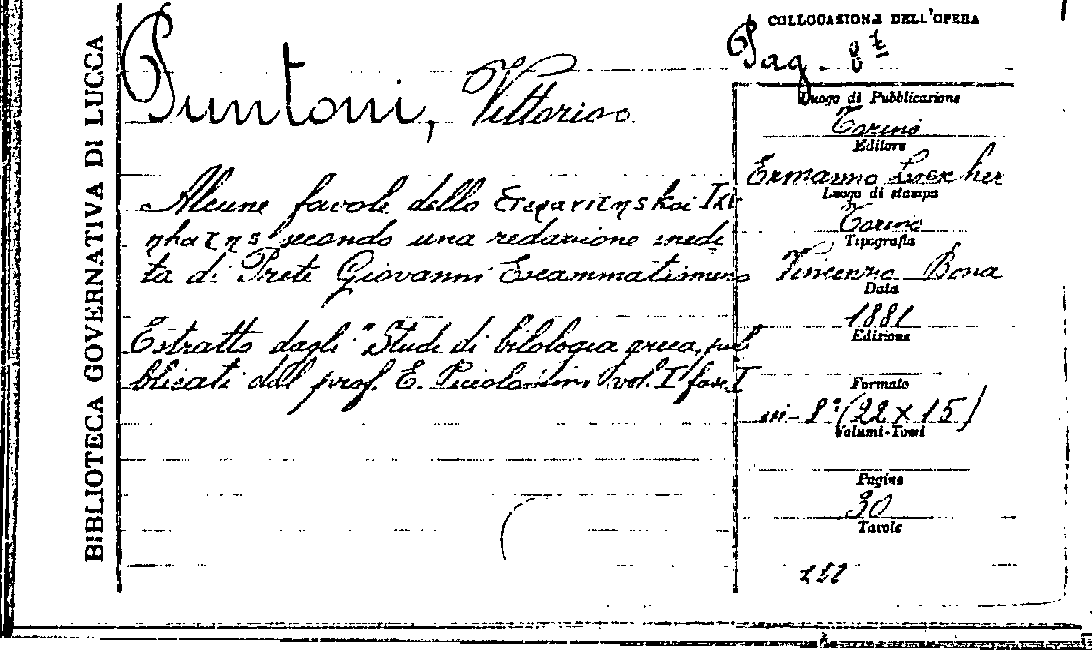 BIBLIOTECA GOVERNATIVA DI LUCCA
Puntoni, Vittorio
Alcune favole dello
secondo una redazione inedi
ta di Prete Giovanni Escammatismeno
Estratto dagli "Studi di filologia greca, pub
blicati dal prof. E. Piccolomini vol. I fasc. I
COLLOCAZIONE DELL'OPERA
Pag.
Luogo di Pubblicazione
Torino
Editore
Ermanno Loescher
Luogo di stampa
Torino
Tipografia
Vincenzo Bona
Data
1881
Edizione
Formato
in-8° (22 x 15)
Volumi-Tomi
Pagine
30
Tavole